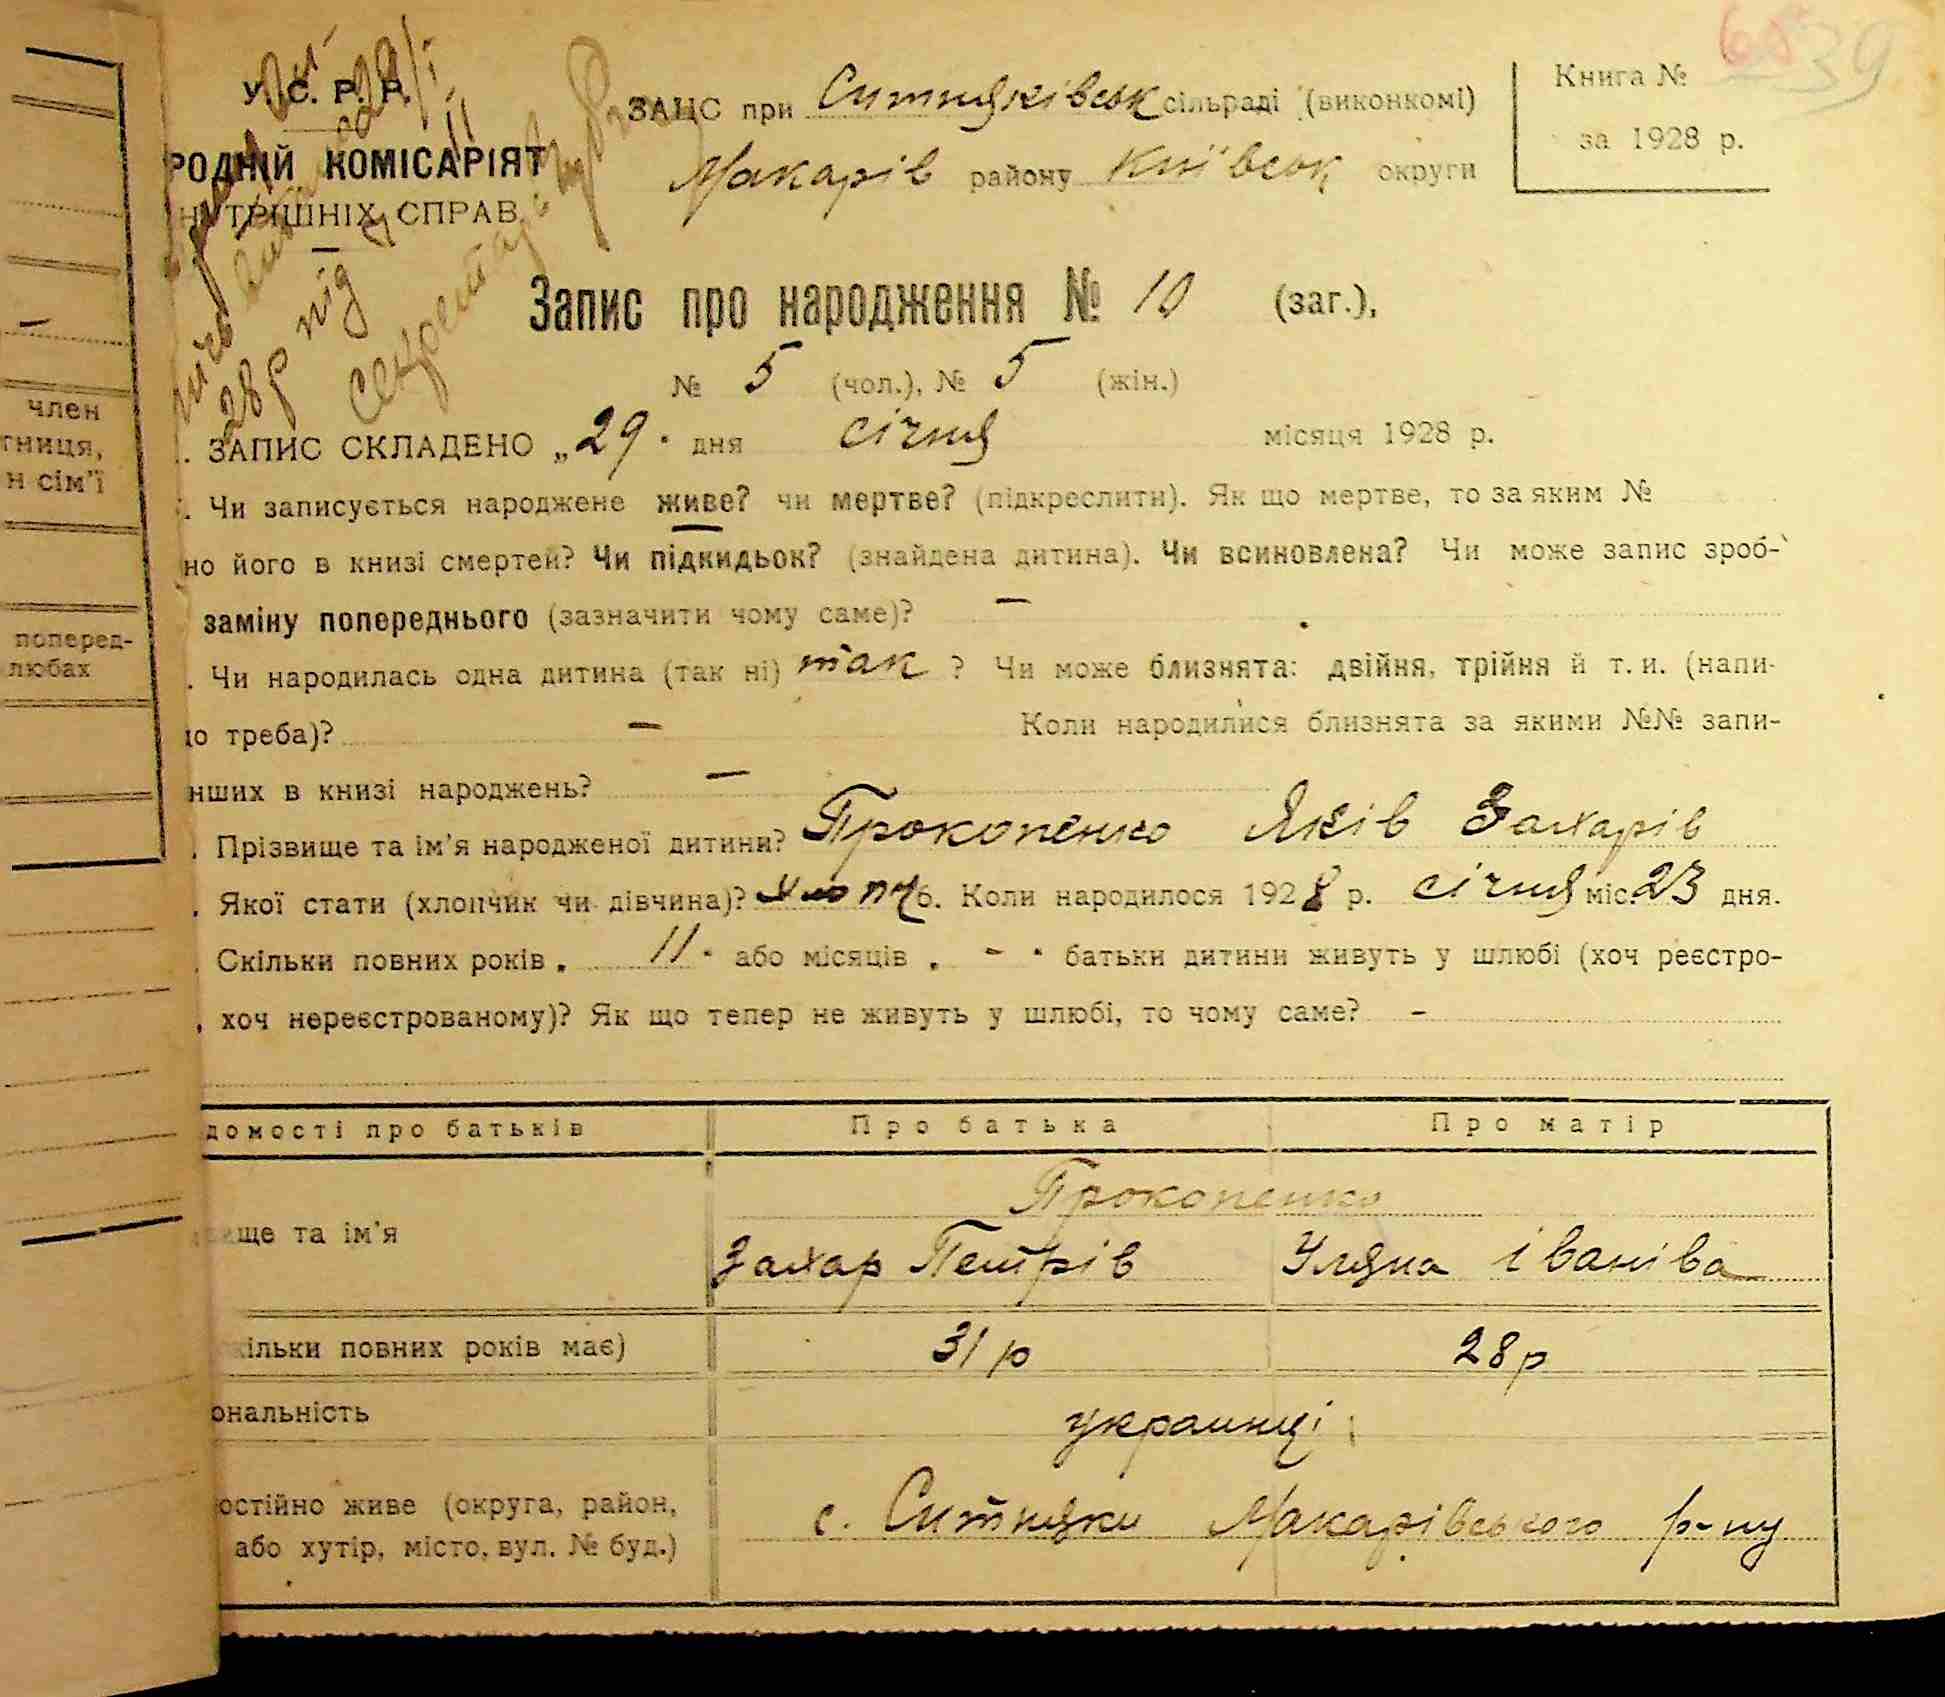 65 39
У. С. Р. Р.
РОДНІЙ КОМІСАРІЯТ
НУТРІШНІХ СПРАВ
28 р під
Секретар
ЗАЦС при Ситняківськ сільраді (виконкомі)
Макарів району Київськ округи
Книга №
за 1928 р.
Запис про народження № 10 (заг.),
№ 5 (чол.), № 5 (жін.)
. ЗАПИС СКЛАДЕНО „29" дня січня місяця 1928 р.
. Чи записується народжене живе? чи мертве? (підкреслити). Як що мертве, то за яким №
но його в книзі смертей? Чи підкидьок? (знайдена дитина). Чи всиновлена? Чи може запис зроб-
заміну попереднього (зазначити чому саме)? —
. Чи народилась одна дитина (так ні) так ? Чи може близнята: двійня, трійня й т. и. (напи-
о треба)? — Коли народилися близнята за якими №№ запи-
нших в книзі народжень? —
. Прізвище та ім'я народженої дитини? Прокопенко Яків Захарів
. Якої стати (хлопчик чи дівчина)? хлопч 6. Коли народилося 1928 р. січня міс. 23 дня.
. Скільки повних років „ 11 " або місяців „ - " батьки дитини живуть у шлюбі (хоч реєстро-
, хоч нереєстрованому)? Як що тепер не живуть у шлюбі, то чому саме? -
домості про батьків Про батька Про матір
Прокопенко
вище та ім'я Захар Петрів Уляна Іванівa
кільки повних років має) 31 р 28 р
ональність украинці
остійно живе (округа, район,
або хутір, місто, вул. № буд.) с. Ситняки Макарівського р-ну
член
тниця,
н сім'ї
поперед-
любах